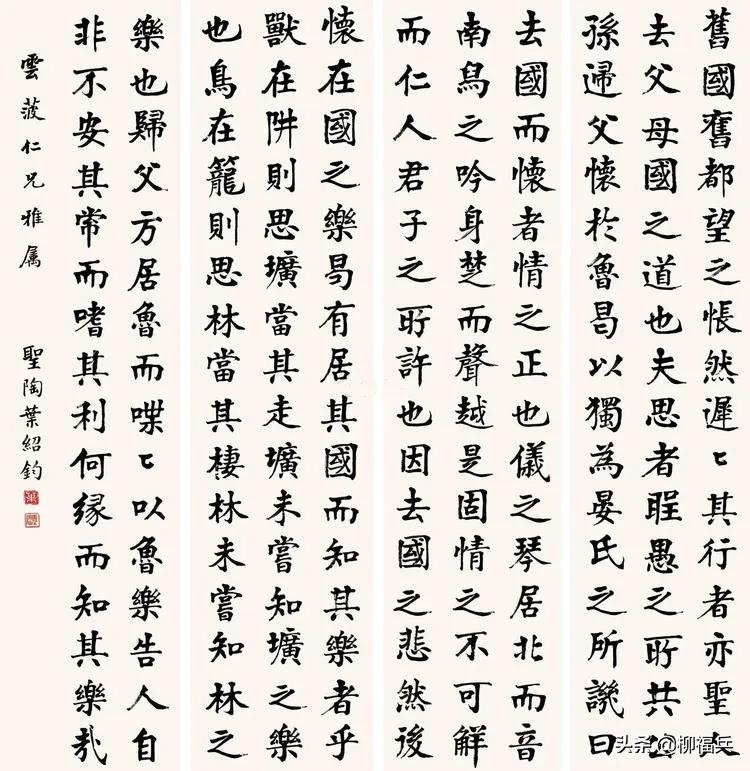 舊國舊都望之悵然遲〻其行者亦聖人
去父母國之道也夫思者愚之所共公
孫歸父懷於魯曷以獨為晏氏之所譏曰
去國而懷者情之正也儀之琴居北而音
南舄之吟身楚而聲越是固情之不可解
而仁人君子之所許也因去國之悲然後
懷在國之樂曷有居其國而知其樂者乎
獸在阱則思壙當其走壙未嘗知壙之樂
也鳥在籠則思林當其棲林未嘗知林之
樂也歸父方居魯而喋〻以魯樂告人自
非不安其常而嗜其利何緣而知其樂哉
雲菠仁兄雅屬 聖陶葉紹鈞
头条 @柳福兵